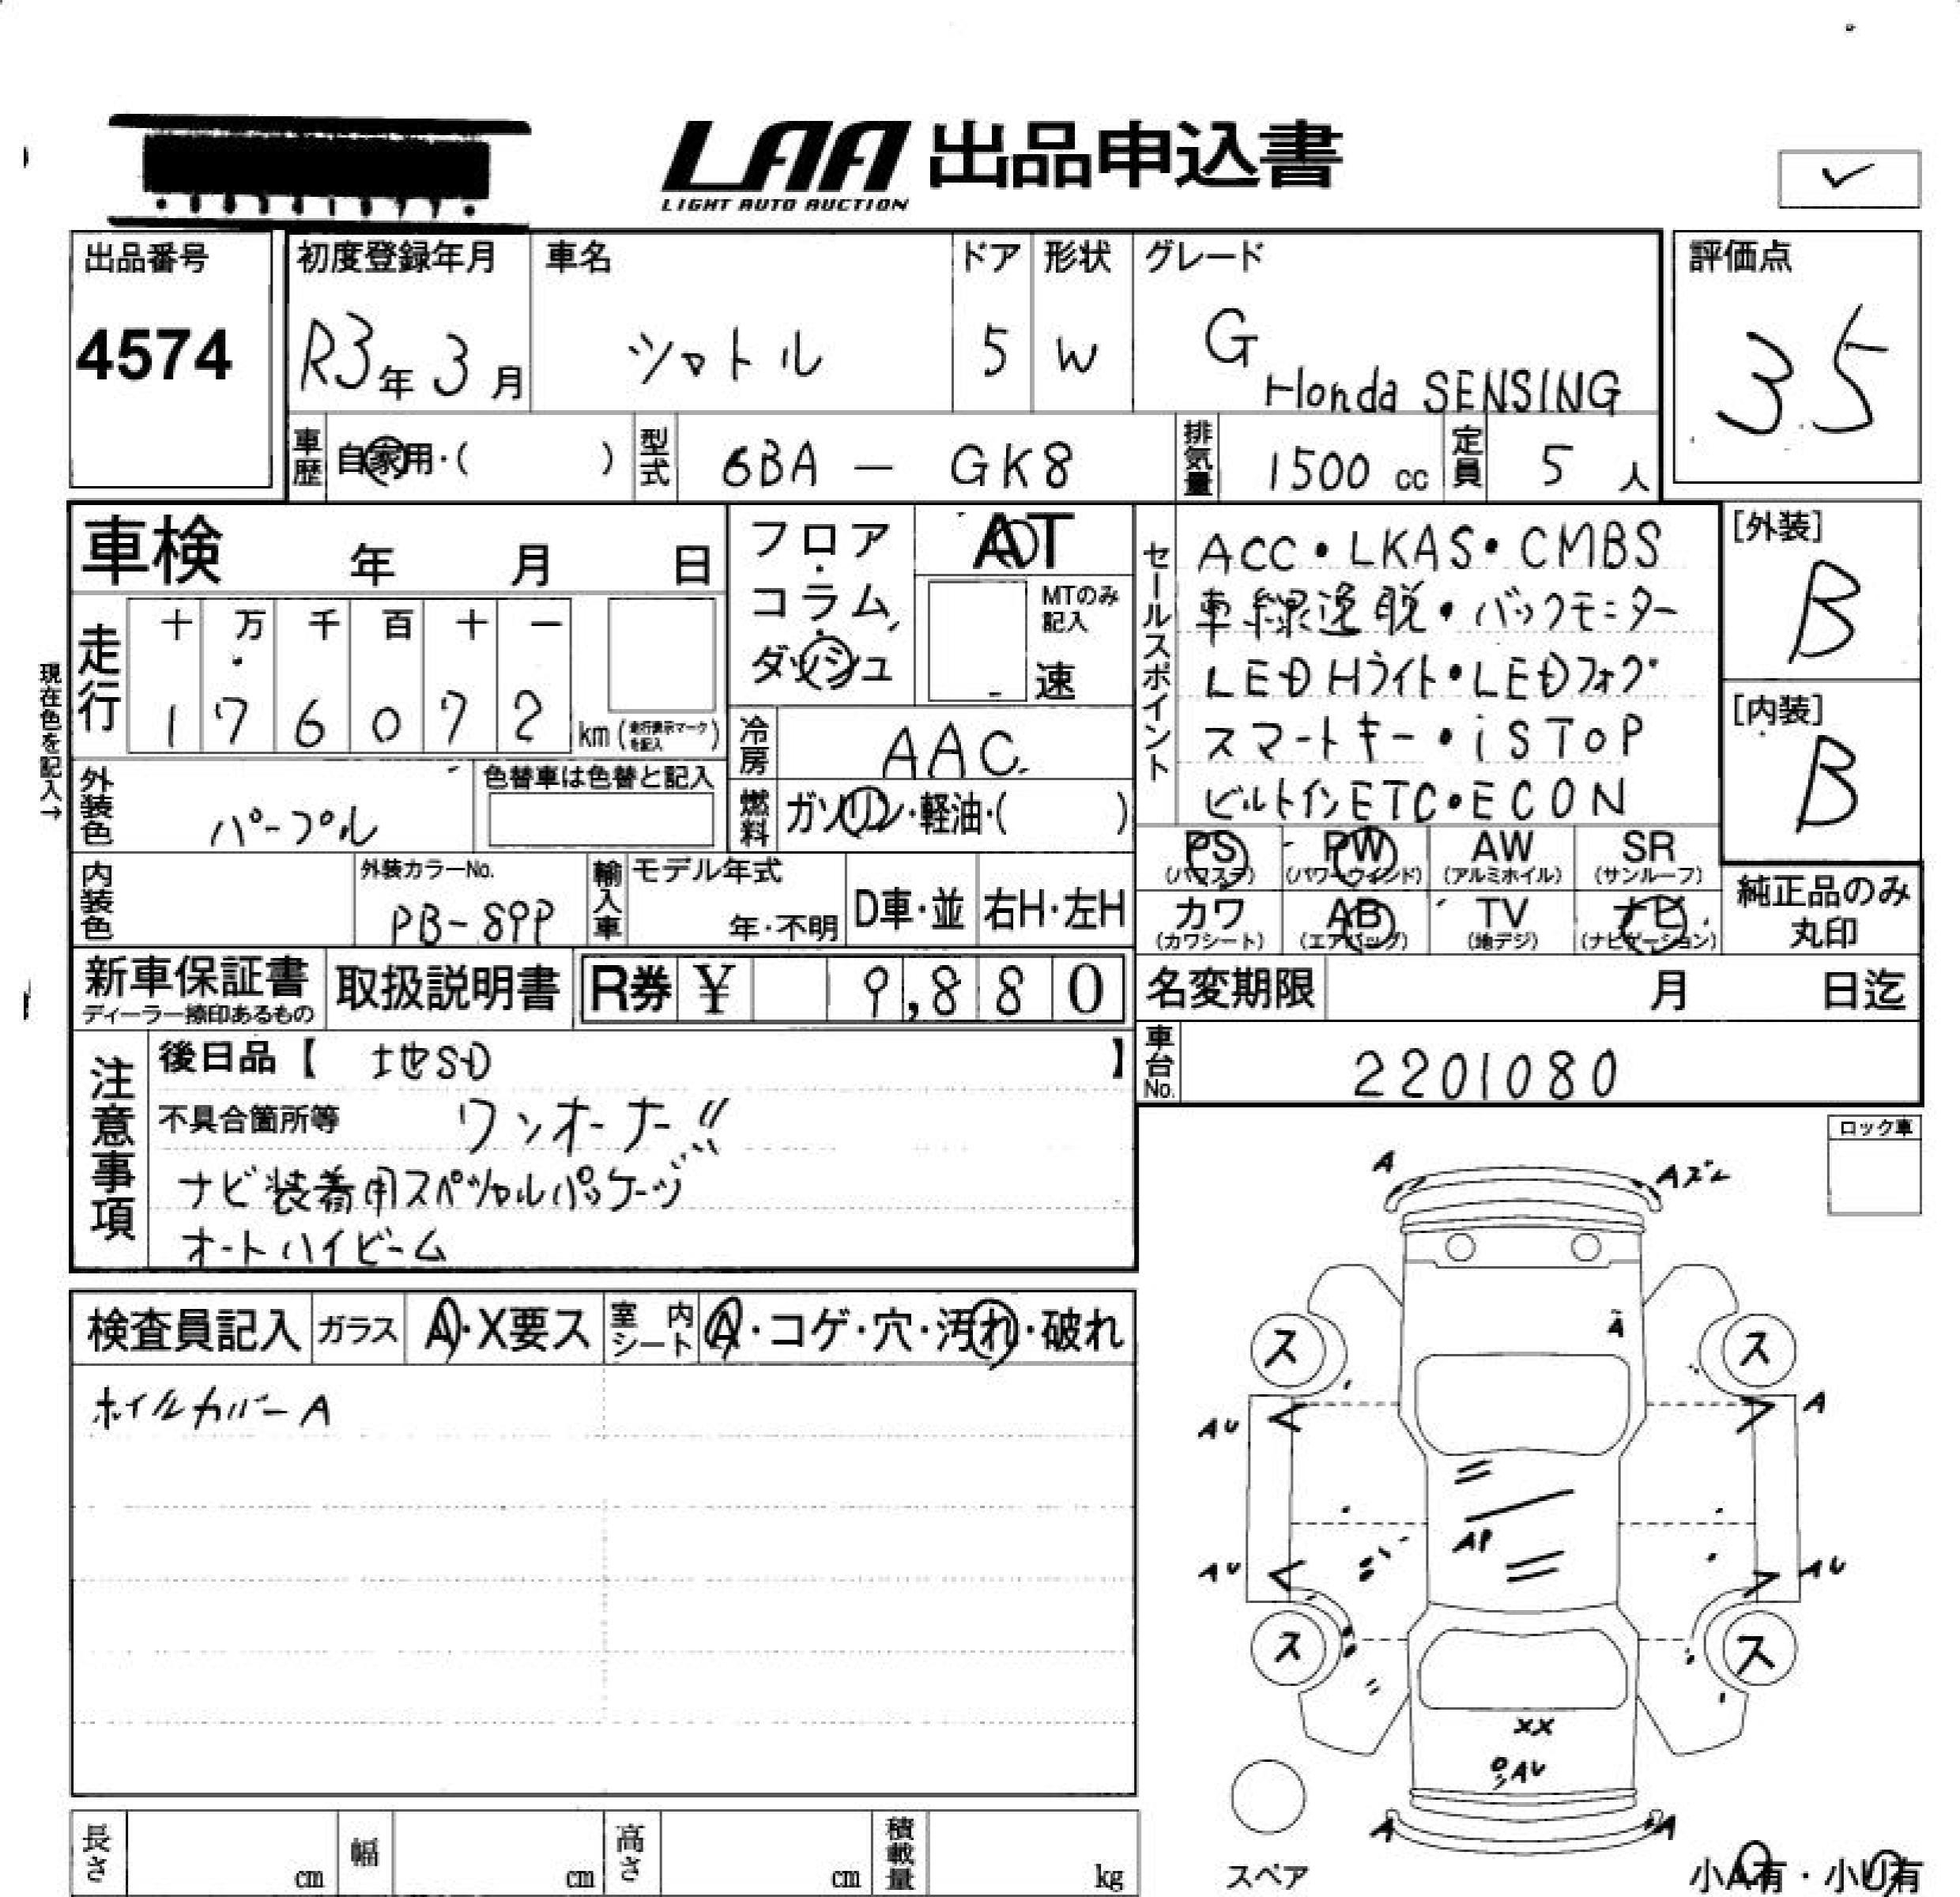 LAA 出品申込書
LIGHT AUTO AUCTION
✓
出品番号
4574
初度登録年月
R3年 3月
車名
シャトル
ドア
5
形状
W
グレード
G
Honda SENSING
評価点
3.5
車歴 自家用・( )
型式 6BA - GK8
排気量 1500 cc
定員 5 人
車検 年 月 日
フロア
コラム
ダッシュ
AT
MTのみ記入
速
セールスポイント
ACC・LKAS・CMBS
車線逸脱・バックモニター
LED Hライト・LEDフォグ
スマートキー・iSTOP
ビルトインETC・ECON
[外装]
B
[内装]
B
現在色を記入→
走行
十 万 千 百 十 一
1 7 6 0 7 2 km (走行表示マークを記入)
冷房 AAC
燃料 ガソリン・軽油・( )
外装色 パープル
色替車は色替と記入
内装色
外装カラーNo.
PB-89P
輸入車
モデル年式
年・不明
D車・並
右H・左H
PS (パワステ)
PW (パワーウィンド)
AW (アルミホイル)
SR (サンルーフ)
カワ (カワシート)
AB (エアバッグ)
TV (地デジ)
ナビ (ナビゲーション)
純正品のみ
丸印
新車保証書
ディーラー捺印あるもの
取扱説明書
R券 ¥ 9,880
名変期限 月 日迄
車台No. 2201080
注意事項
後日品【 地SD 】
不具合箇所等 ワンオーナー!!
ナビ装着用スペシャルパッケージ
オートハイビーム
ロック車
検査員記入
ガラス A・X要ス
室内シート A・コゲ・穴・汚れ・破れ
ホイルカバーA
A
Aズレ
A
ス
ス
AU
A
AP
AU
AU
ス
ス
XX
AU
A
A
スペア
小A有・小U有
長さ cm
幅 cm
高さ cm
積載量 kg